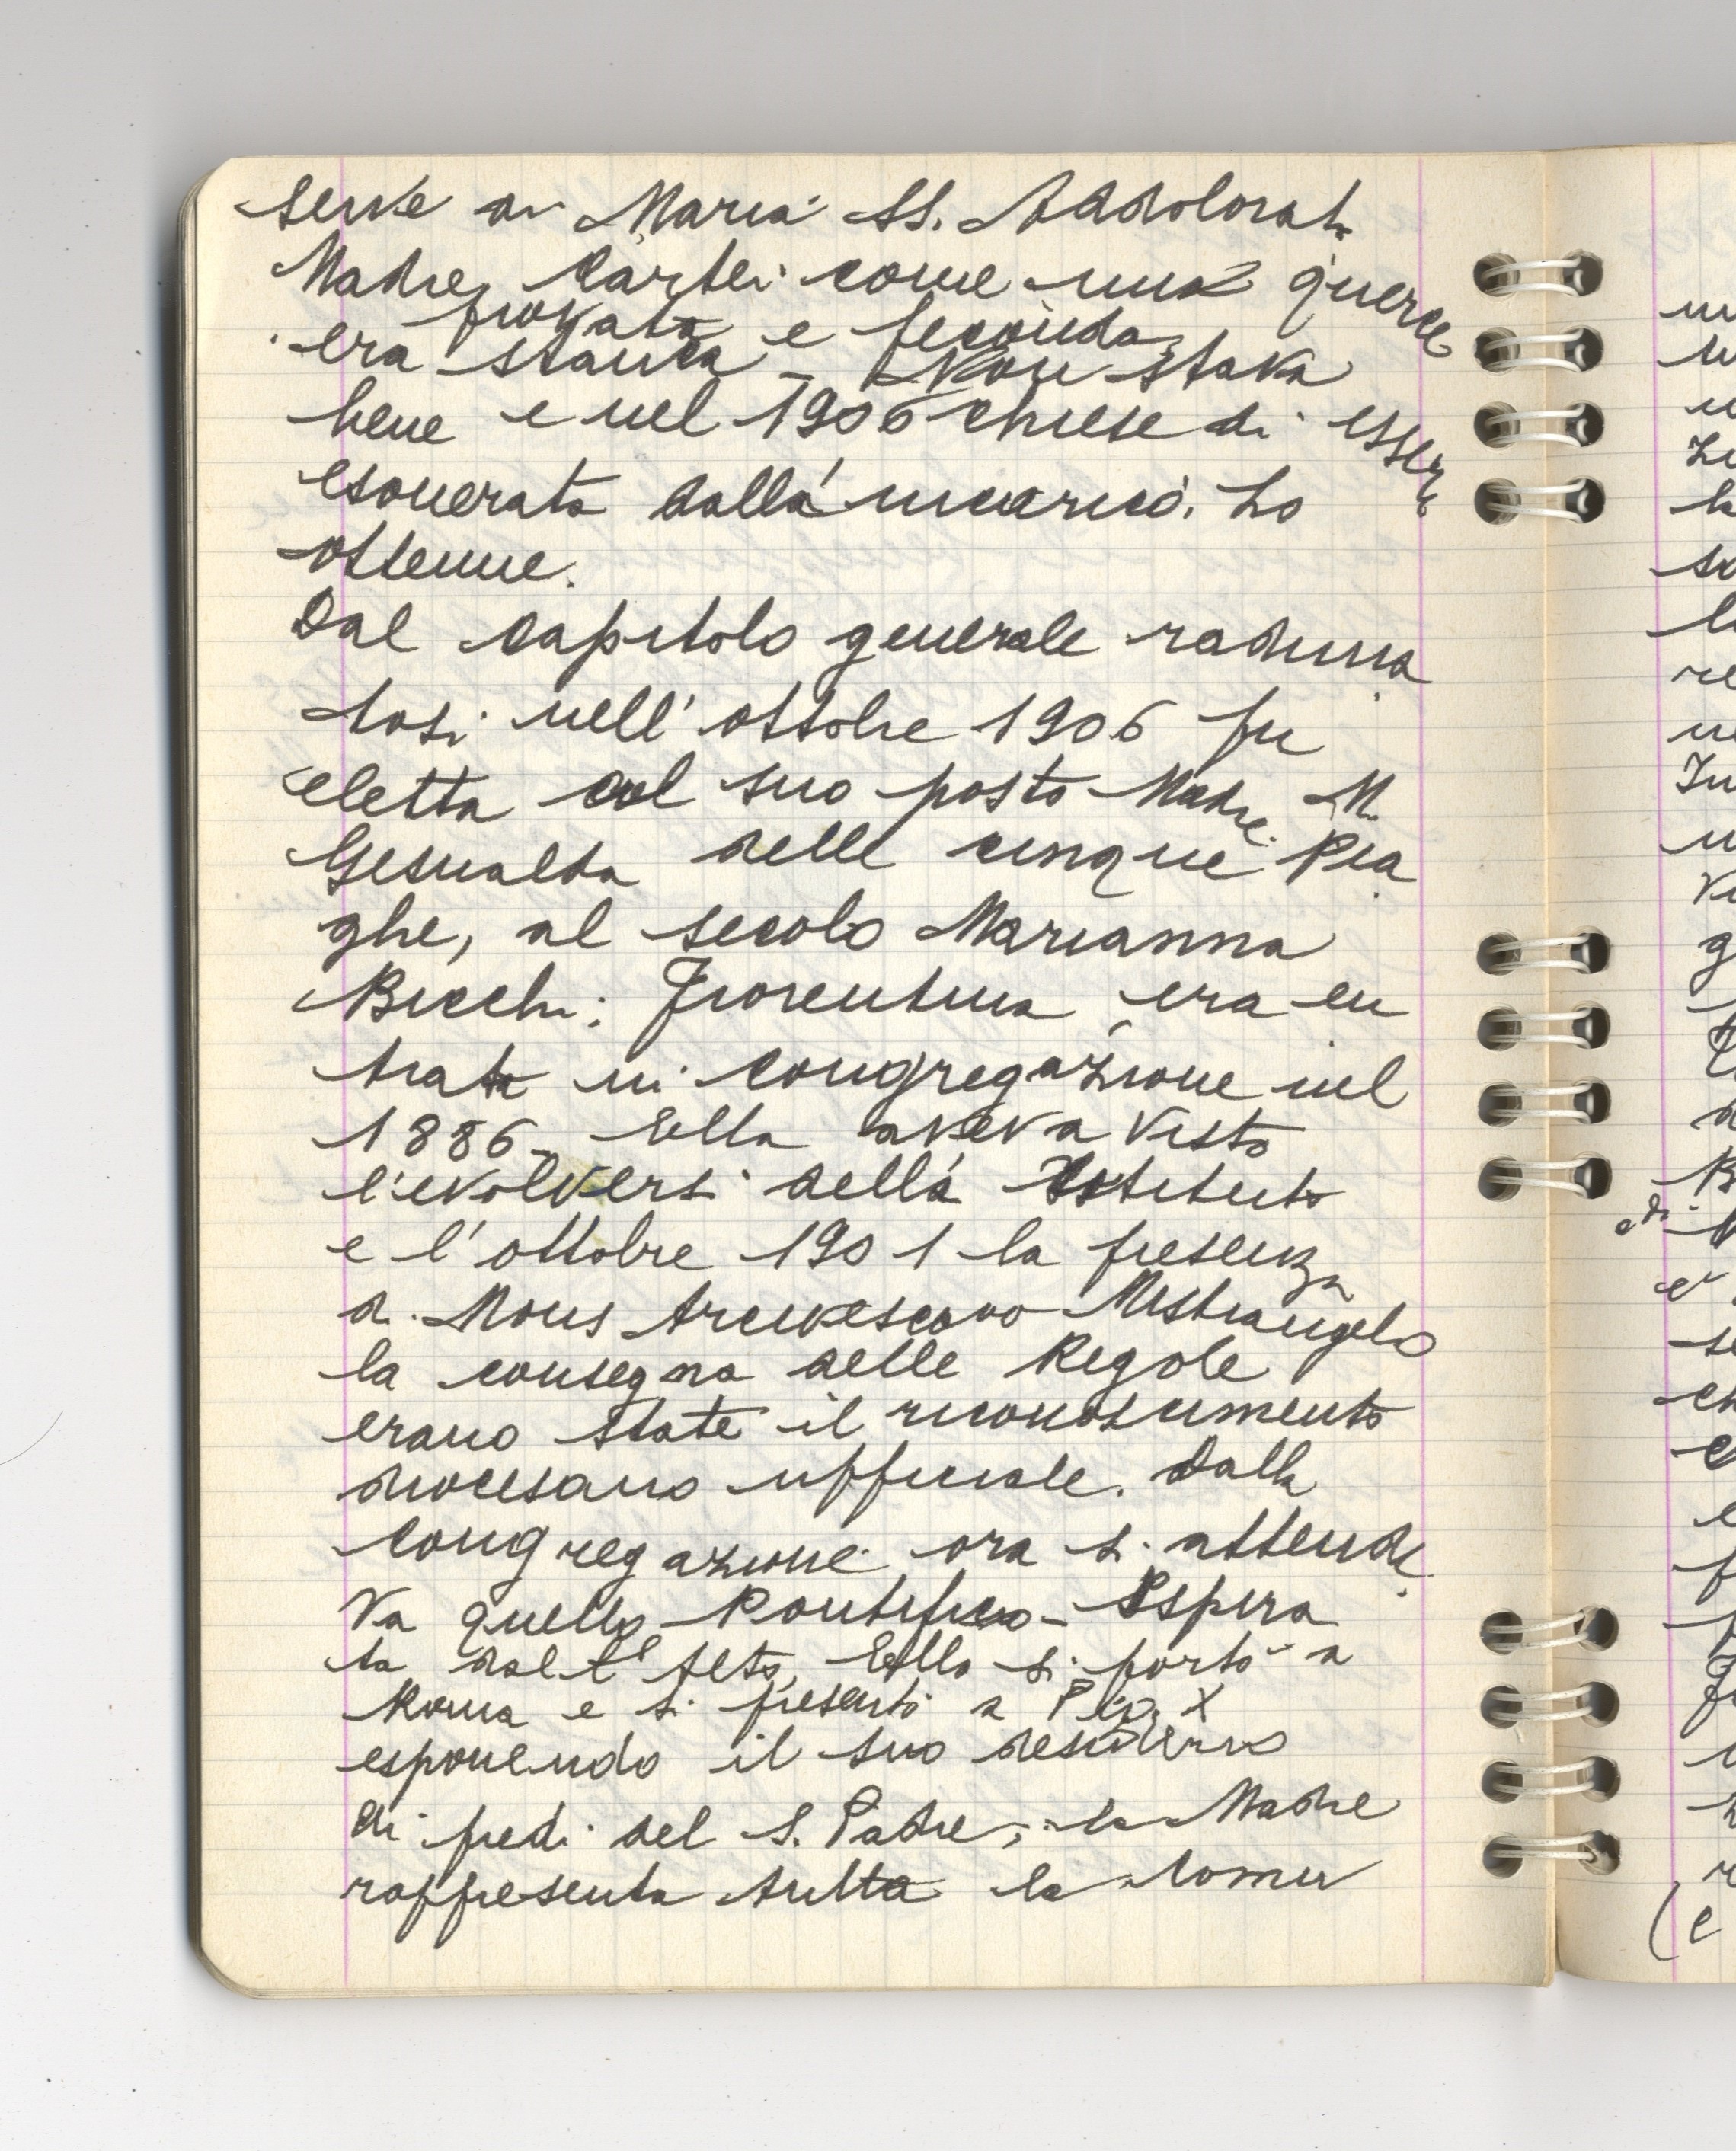 Serve di Maria SS. Addolorata
Madre Cartei come una quercia
provata e feconda,
era stanca - Non stava
bene e nel 1906 chiese di essere
esonerata dall'incarico. Lo
ottenne.
Dal capitolo generale raduna
tosi nell'ottobre 1906 fu
eletta al suo posto Madre M.
Gesualda delle cinque Pia
ghe, al secolo Marianna
Bicchi; Fiorentina, era en
trata in congregazione nel
1886- Ella aveva visto
l'evolversi della Istituto
e l'ottobre 1901 la presenza
di Mons Arcivescovo Mistrangelo
la consegna delle Regole
erano state il riconoscimento
diocesano ufficiale. Dalla
congregazione ora si attende
va quello Pontificio - Ispira
ta dall'Alto, Ella si portò a
Roma e si presentò a Pio X
esponendo il suo desiderio
Ai piedi del S. Padre, la Madre
rappresenta tutta la